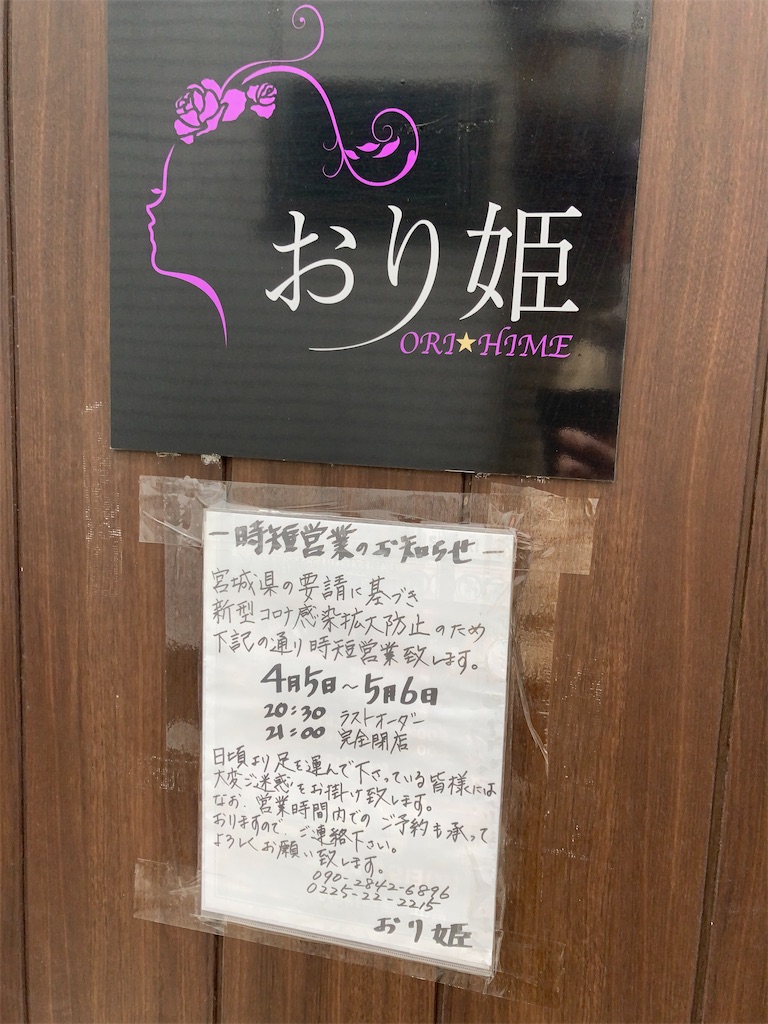 おり姫
ORI★HIME
－時短営業のお知らせ－
宮城県の要請に基づき
新型コロナ感染拡大防止のため
下記の通り時短営業致します。
4月5日～5月6日
20:30 ラストオーダー
21:00 完全閉店
日頃より足を運んで下さっている皆様には
大変ご迷惑をお掛け致します。
なお、営業時間内でのご予約も承って
おりますので、ご連絡下さい。
よろしくお願い致します。
090-2842-6896
0225-22-2215
おり姫